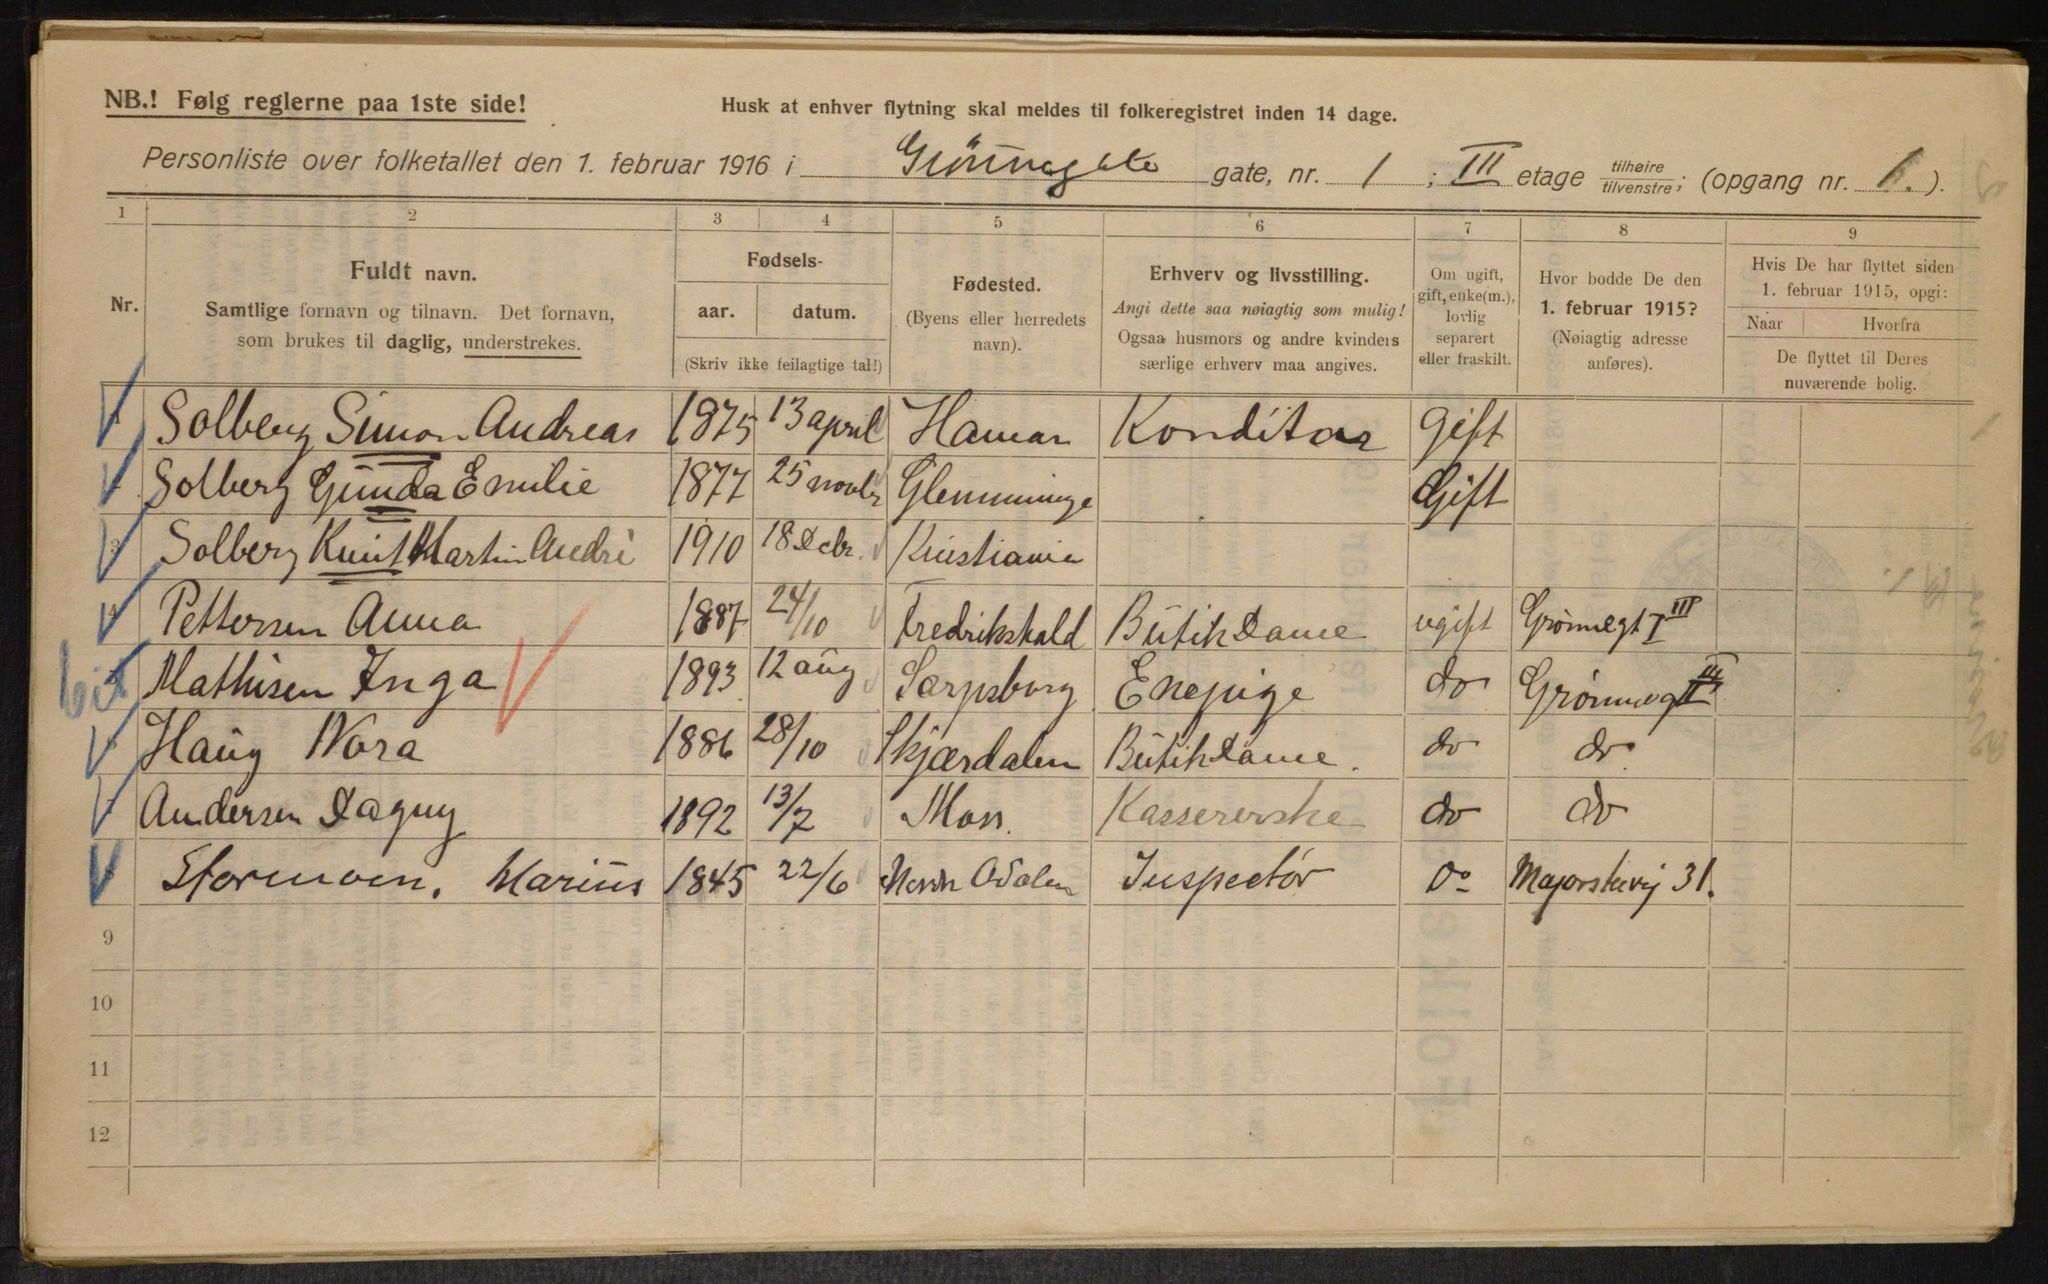 NB.! Følg reglerne paa 1ste side!
Husk at enhver flytning skal meldes til folkeregistret inden 14 dage.
Personliste over folketallet den 1. februar 1916 i Grönnegate gate, nr. 1 ; III etage tilhøire tilvenstre; (opgang nr. 1. ).
1 2 3 4 5 6 7 8 9
Nr.
Fuldt navn.
Samtlige fornavn og tilnavn. Det fornavn,
som brukes til daglig, understrekes.
Fødsels-
aar. datum.
(Skriv ikke feilagtige tal!)
Fødested.
(Byens eller herredets
navn).
Erhverv og livsstilling.
Angi dette saa nøiagtig som mulig!
Ogsaa husmors og andre kvinders
særlige erhverv maa angives.
Om ugift,
gift, enke(m.),
lovlig
separert
eller fraskilt.
Hvor bodde De den
1. februar 1915?
(Nøiagtig adresse
anføres).
Hvis De har flyttet siden
1. februar 1915, opgi:
Naar Hvorfra
De flyttet til Deres
nuværende bolig.
Solberg Simon Andreas 1875 13 april Hamar Konditor gift
Solberg Gunda Emilie 1877 25 novbr Glemminge Gift
Solberg Knut Martin André 1910 18 Dcbr. Kristiania
4 Pettersen Anna 1887 24/10 Fredrikshald Butik Dame ugift Grønnegt I III
Mathisen Inga 1893 12 aug Sarpsborg Enepige do Grønnegt III
Haug Nora 1886 28/10 Skjærdalen Butik Dame. do do
Andersen Dagny 1892 13/7 Moss. Kassererske do do
Stormoen. Marius 1845 22/6 Nordre Odalen Inspectør Do Majorstuvej 31.
9
10
11
12